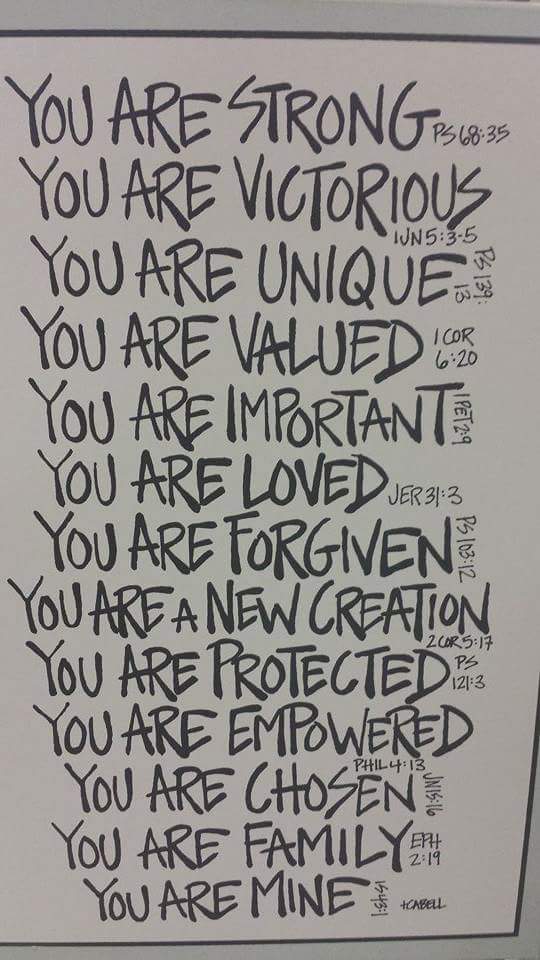 YOU ARE STRONG PS 68:35
YOU ARE VICTORIOUS
1JN 5:3-5
YOU ARE UNIQUE PS 139:13
YOU ARE VALUED 1 COR 6:20
YOU ARE IMPORTANT 1 PET 2:9
YOU ARE LOVED JER 31:3
YOU ARE FORGIVEN PS 103:12
YOU ARE A NEW CREATION
2 COR 5:17
YOU ARE PROTECTED PS 121:3
YOU ARE EMPOWERED
PHIL 4:13
YOU ARE CHOSEN JN 15:16
YOU ARE FAMILY EPH 2:19
YOU ARE MINE IS 43:1
+CABELL